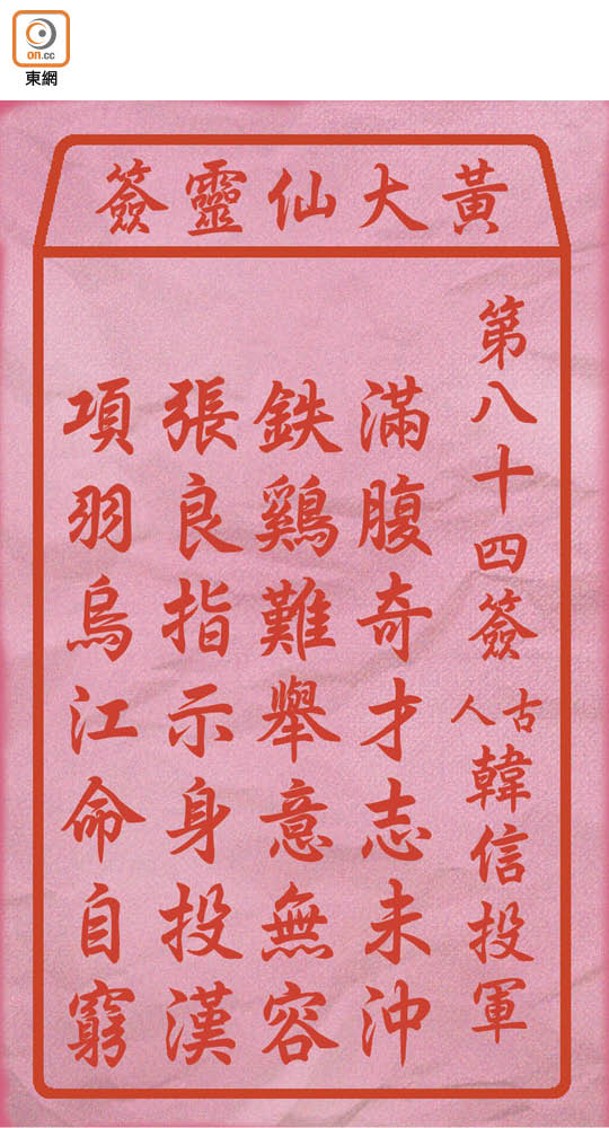 on.cc
東網
黃大仙靈簽
第八十四簽 古人 韓信投軍
滿腹奇才志未沖
鉄鷄難舉意無容
張良指示身投漢
項羽烏江命自窮